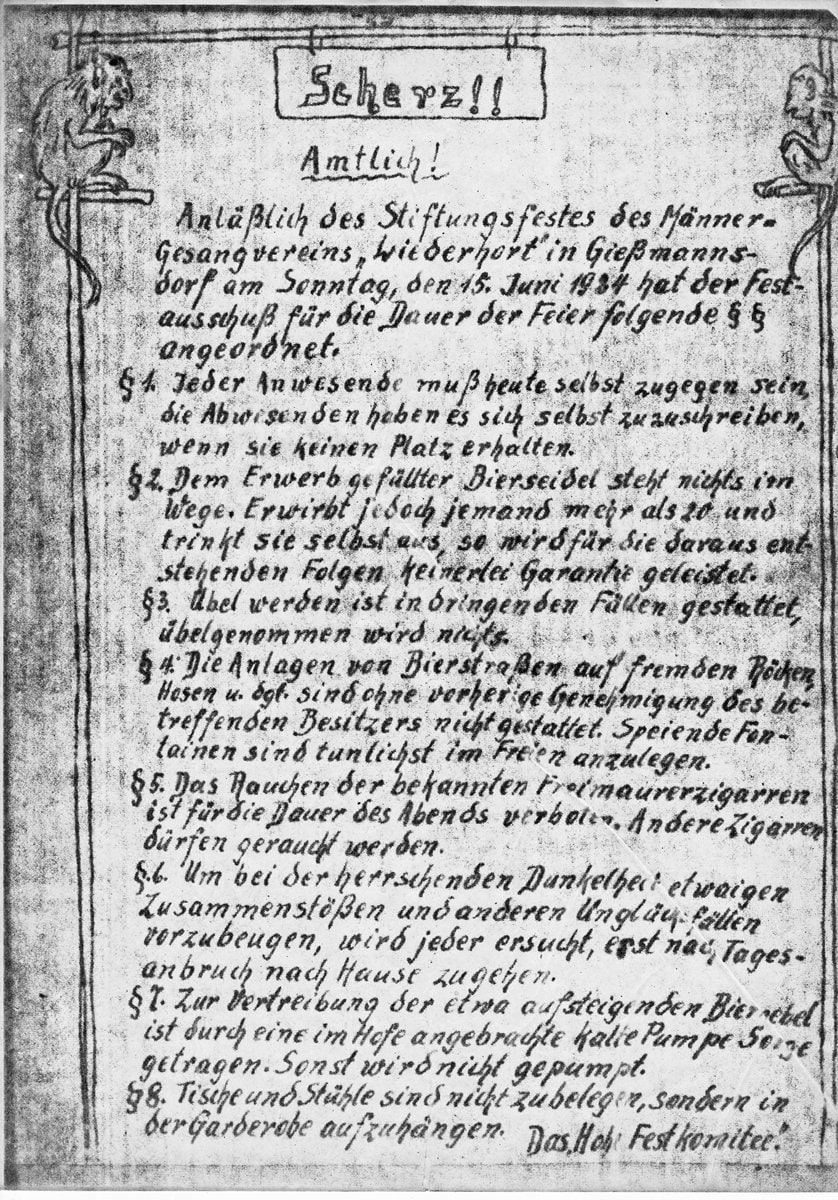 Scherz!!
Amtlich!
Anläßlich des Stiftungsfestes des Männer-
Gesangvereins „Wiederhort" in Gießmanns-
dorf am Sonntag, den 15. Juni 1934 hat der Fest-
ausschuß für die Dauer der Feier folgende § §
angeordnet.
§ 1. Jeder Anwesende muß heute selbst zugegen sein,
die Abwesenden haben es sich selbst zuzuschreiben,
wenn sie keinen Platz erhalten.
§ 2. Dem Erwerb gefüllter Bierseidel steht nichts im
Wege. Erwirbt jedoch jemand mehr als 20 und
trinkt sie selbst aus, so wird für die daraus ent-
stehenden Folgen keinerlei Garantie geleistet.
§ 3. Übel werden ist in dringenden Fällen gestattet,
übelgenommen wird nichts.
§ 4. Die Anlagen von Bierstraßen auf fremden Röcken,
Hosen u. dgl. sind ohne vorherige Genehmigung des be-
treffenden Besitzers nicht gestattet. Speiende Fon-
tainen sind tunlichst im Freien anzulegen.
§ 5. Das Rauchen der bekannten Freimaurerzigarren
ist für die Dauer des Abends verboten. Andere Zigarren
dürfen geraucht werden.
§. 6. Um bei der herrschenden Dunkelheit etwaigen
Zusammenstößen und anderen Unglücksfällen
vorzubeugen, wird jeder ersucht, erst nach Tages-
anbruch nach Hause zugehen.
§ 7. Zur Vertreibung der etwa aufsteigenden Biernebel
ist durch eine im Hofe angebrachte kalte Pumpe Sorge
getragen. Sonst wird nicht gepumpt.
§ 8. Tische und Stühle sind nicht zu belegen, sondern in
der Garderobe aufzuhängen.
Das „Hohe Festkomitee."